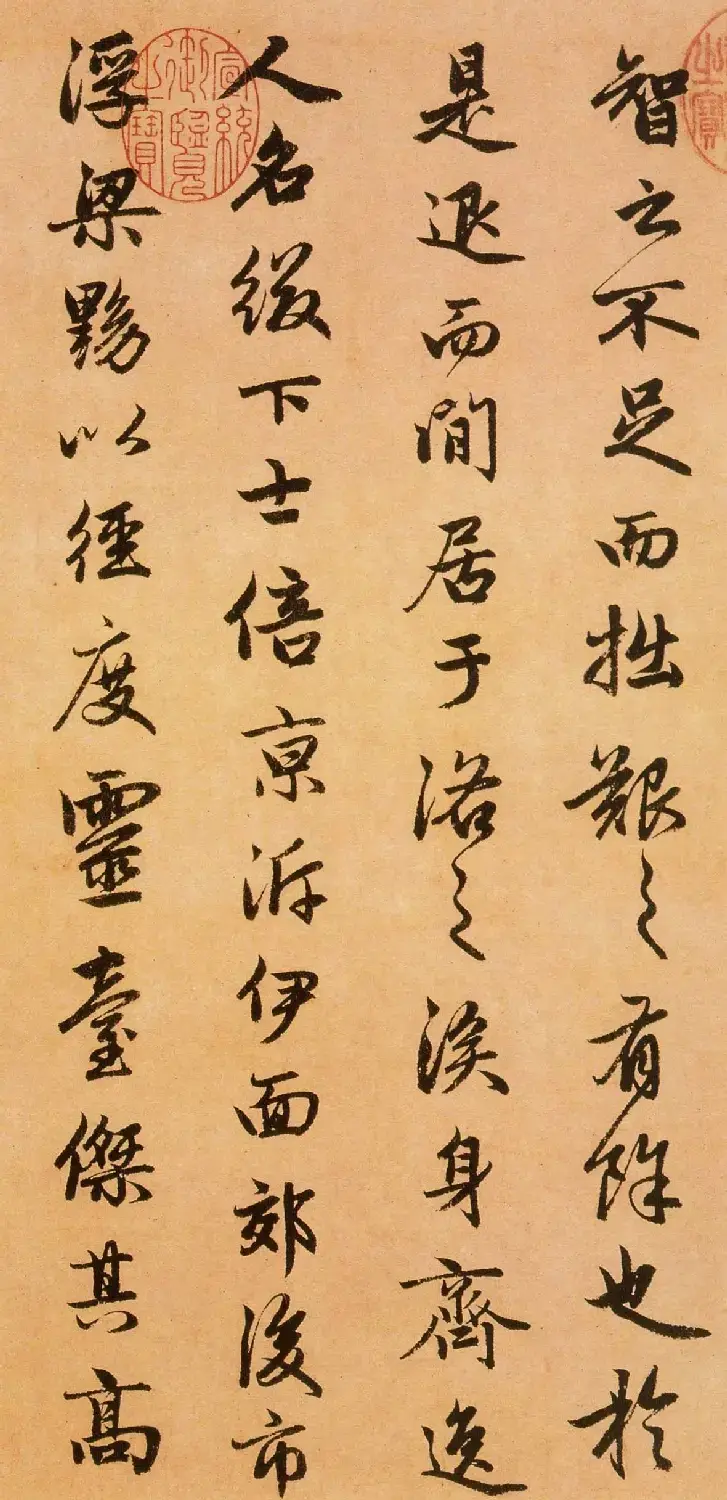 智之不足而拙艱之有餘也於
是退而閒居于洛之涘身齊逸
人名綴下士倍京泝伊面郊後市
浮梁黝以徑度靈臺傑其高
宣統
御覽
之寶
之寶